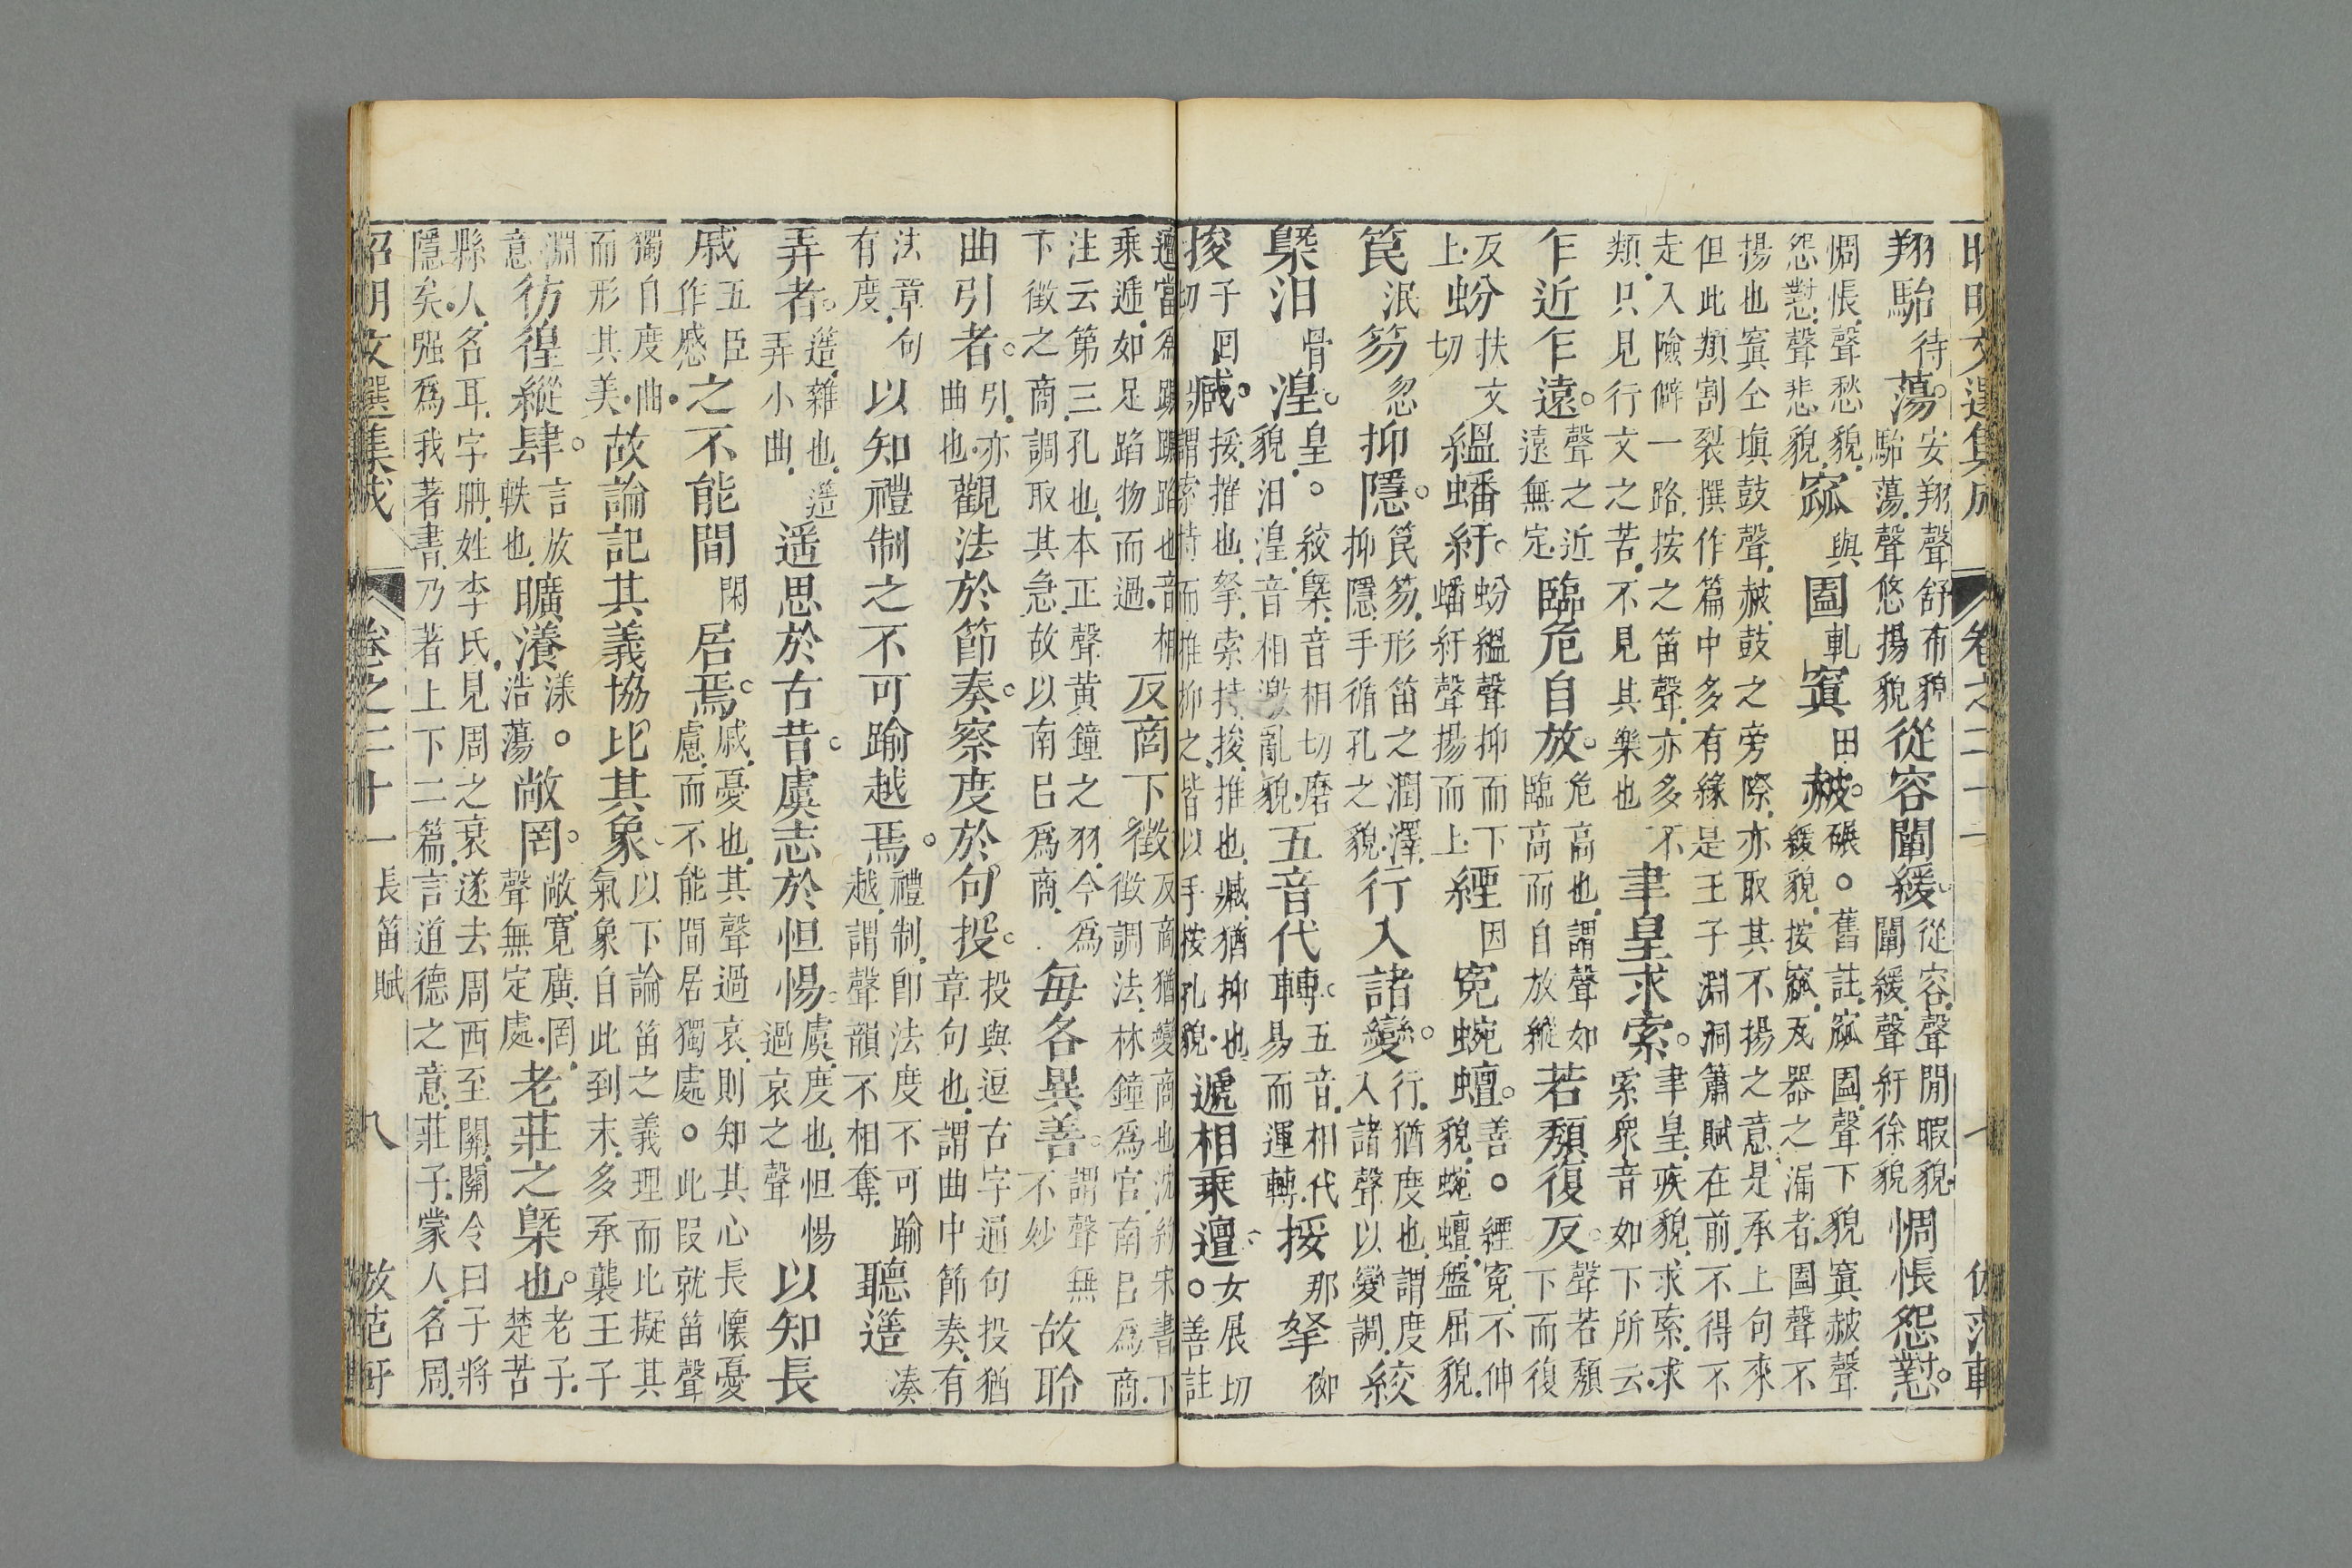 昭明文選集成 卷之二十一 仿范軒
翔駘待蕩。安翔聲舒布貌駘蕩聲悠揚貌從容闡緩。從容聲閒暇貌闡緩聲紆徐貌惆悵怨懟。
惆悵聲愁貌怨懟聲悲貌窳與圔軋窴田赧。碾。舊註窳圔聲下貌窴赧聲緩貌按窳瓦器之漏者圔聲不
揚也窴仝塡鼓聲赧鼓之旁際亦取其不揚之意是承上句來
但此類割裂撰作篇中多有緣是王子淵洞簫賦在前不得不
走入險僻一路按之笛聲亦多不類只見行文之苦不見其樂也聿皇求索。聿皇疾貌求索求索衆音如下所云
乍近乍遠。聲之近遠無定臨危自放。危高也謂聲如臨高而自放縱若頹復反。聲若頹下而復
反上蚡扶文切縕蟠紆。蚡縕聲抑而下蟠紆聲揚而上緸因冤蜿蟺。善。緸冤不伸貌蜿蟺盤屈貌
笢泯笏忽抑隱。笢笏形笛之潤澤抑隱手循孔之貌行入諸變。行猶度也謂度入諸聲以變調絞
槩汨骨湟。皇。絞槩音相切磨貌汨湟音相激亂貌五音代轉。五音相代易而運轉挼那拏
捘子回切臧。挼摧也拏索持捘推也臧猶抑也謂索持而推抑之皆以手按孔貌遞相乘邅。女展切。善註
邅當為躔躔踏也音相乘逓如足踏物而過反商下徵反商猶變商也沈約宋書下徵調法林鐘爲宫南呂爲商
注云第三孔也本正聲黄鐘之羽今爲下徵之商調取其急故以南呂爲商每各異善。謂聲無不妙故聆
曲引者。引亦曲也觀法於節奏。察度於句投。投與逗古字通句投猶章句也謂曲中節奏有
法章句有度以知禮制之不可踰越焉。禮制卽法度不可踰越謂聲韻不相奪聽簉凑
弄者。簉雜也簉弄小曲遥思於古昔。虞志於怛惕。虞度也怛惕過哀之聲以知長
戚五臣作慼之不能間閑居焉。戚憂也其聲過哀則知其心長懷憂慮而不能間居獨處。此叚就笛聲
獨自度曲而形其美故論記其義協比其象。以下論笛之義理而比擬其氣象自此到末多承襲王子
淵意彷徨縱肆。言放軼也曠瀁漾。浩蕩敞罔。敞寛廣罔聲無定處老莊之槩也。老子楚苦
縣人名耳字聃姓李氏見周之衰遂去周西至關關令曰子將
隱矣强爲我著書乃著上下二篇言道德之意莊子蒙人名周
昭明文選集成 卷之二十一 長笛賦 八 仿范軒